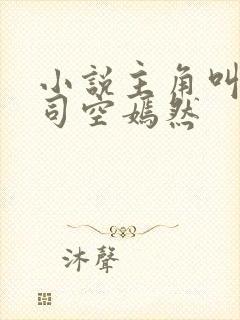 小説主角叫
司空嫣然
沐聲